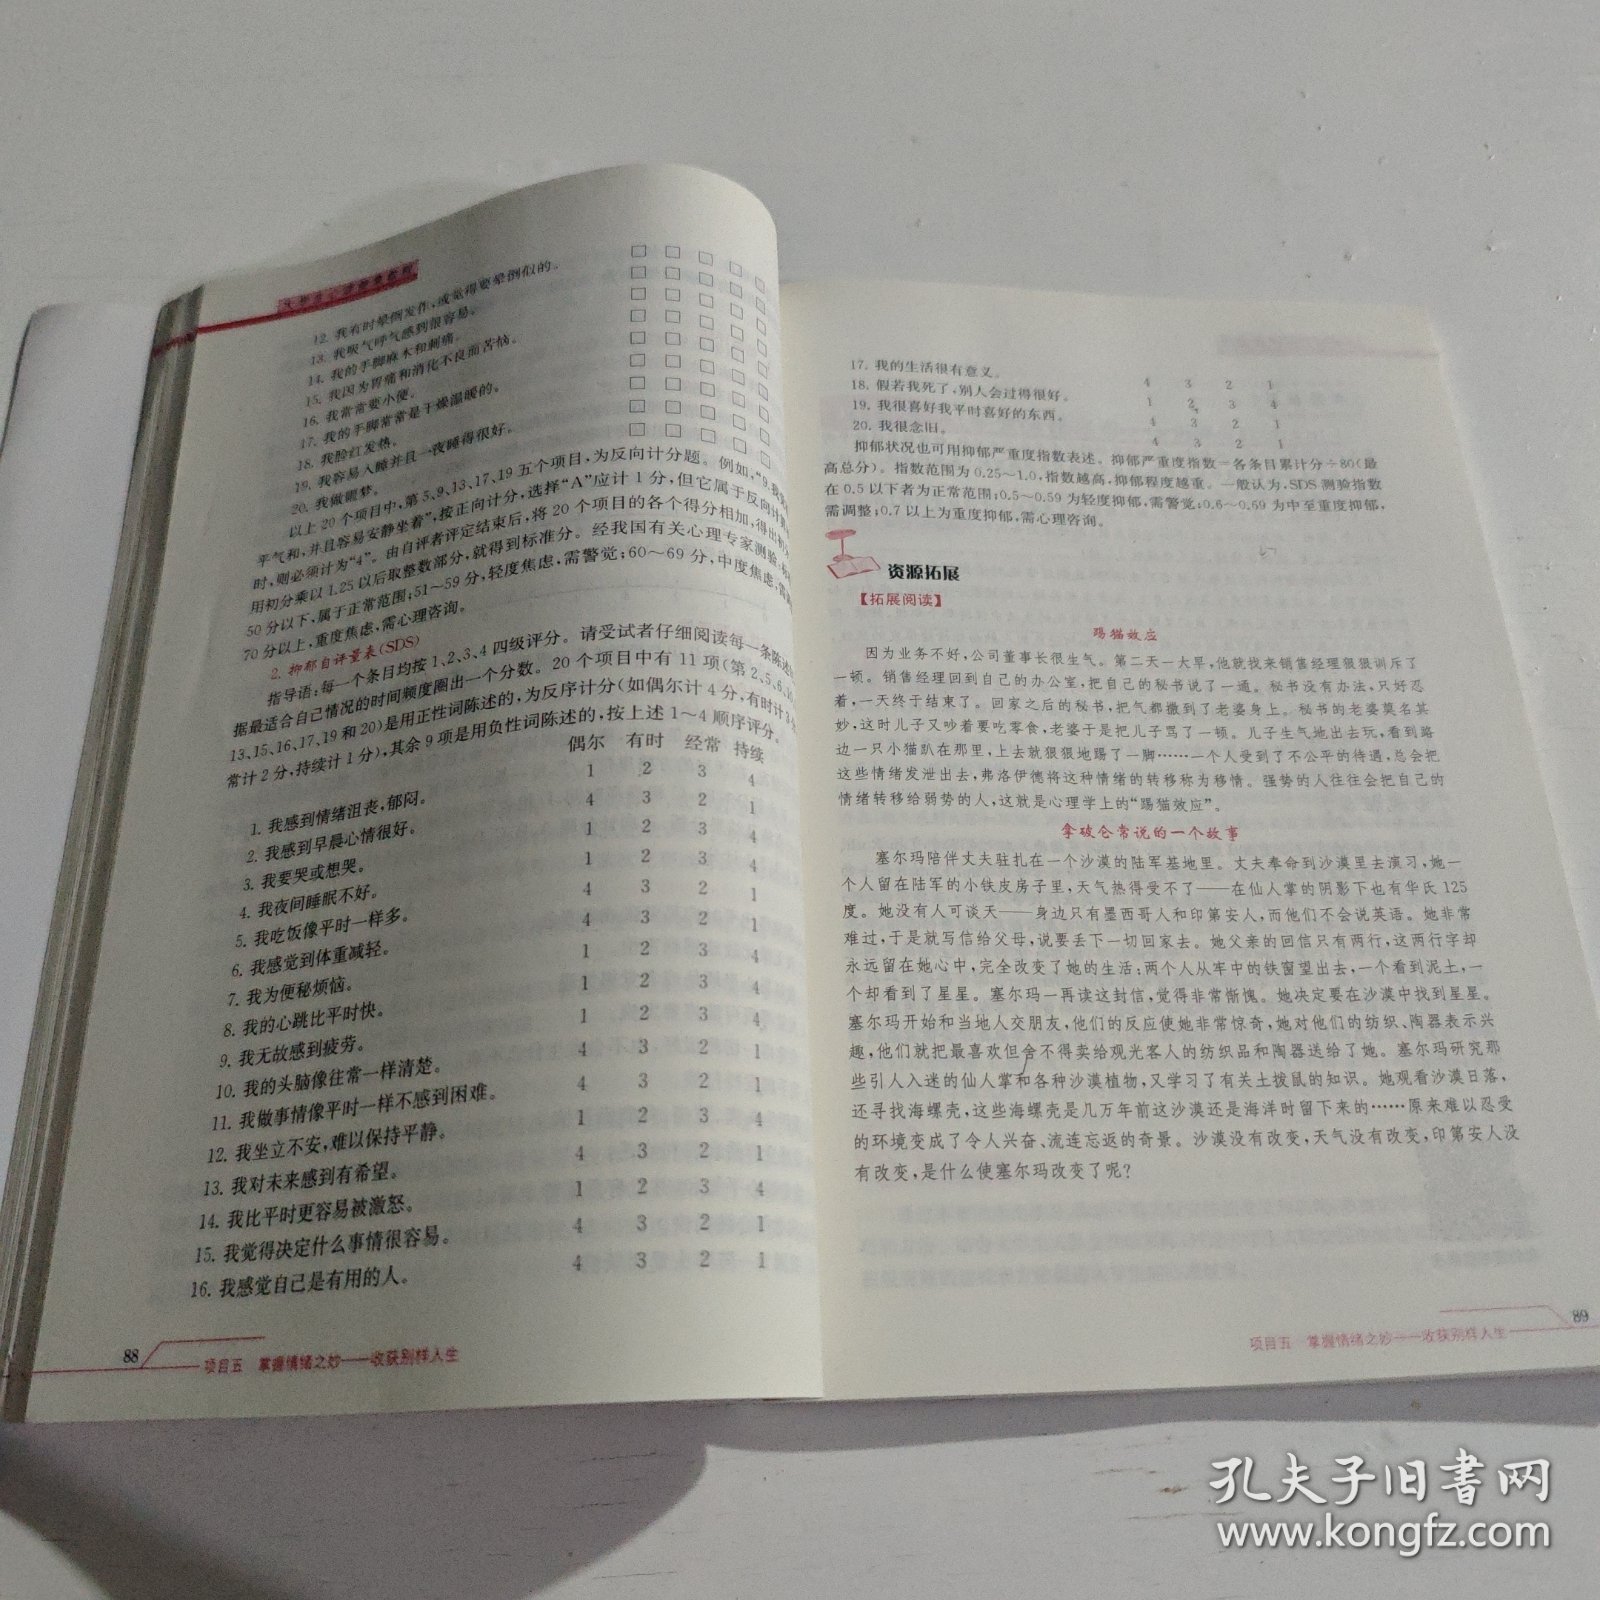 12. 我有时晕倒发作,或觉得要晕倒似的。
13. 我吸气呼气感到很容易。
14. 我的手脚麻木和刺痛。
15. 我因为胃痛和消化不良而苦恼。
16. 我常常要小便。
17. 我的手脚常常是干燥温暖的。
18. 我脸红发热。
19. 我容易入睡并且一夜睡得很好。
20. 我做噩梦。
以上20个项目中,第5、9、13、17、19五个项目,为反向计分题。例如,“9.我
平气和,并且容易安静坐着”,按正向计分,选择“A”应计1分,但它属于反向计
时,则必须计为“4”。由自评者评定结束后,将20个项目的各个得分相加,得出
用初分乘以1.25以后取整数部分,就得到标准分。经我国有关心理专家测验:
50分以下,属于正常范围;51~59分,轻度焦虑,需警觉;60~69分,中度焦虑,
70分以上,重度焦虑,需心理咨询。
2. 抑郁自评量表(SDS)
指导语:每一个条目均按1、2、3、4四级评分。请受试者仔细阅读每一条陈述
据最适合自己情况的时间频度圈出一个分数。20个项目中有11项(第2、5、6、
13、15、16、17、19和20)是用正性词陈述的,为反序计分(如偶尔计4分,有时计3
常计2分,持续计1分),其余9项是用负性词陈述的,按上述1~4顺序评分。
偶尔 有时 经常 持续
1. 我感到情绪沮丧,郁闷。 1 2 3 4
2. 我感到早晨心情很好。 4 3 2 1
3. 我要哭或想哭。 1 2 3 4
4. 我夜间睡眠不好。 1 2 3 4
5. 我吃饭像平时一样多。 4 3 2 1
6. 我感觉到体重减轻。 4 3 2 1
7. 我为便秘烦恼。 1 2 3 4
8. 我的心跳比平时快。 1 2 3 4
9. 我无故感到疲劳。 1 2 3 4
10. 我的头脑像往常一样清楚。 4 3 2 1
11. 我做事情像平时一样不感到困难。 4 3 2 1
12. 我坐立不安,难以保持平静。 1 2 3 4
13. 我对未来感到有希望。 4 3 2 1
14. 我比平时更容易被激怒。 1 2 3 4
15. 我觉得决定什么事情很容易。 4 3 2 1
16. 我感觉自己是有用的人。 4 3 2 1
88 项目五 掌握情绪之妙——收获别样人生
17. 我的生活很有意义。 4 3 2 1
18. 假若我死了,别人会过得很好。 1 2 3 4
19. 我很喜好我平时喜好的东西。 4 3 2 1
20. 我很念旧。 4 3 2 1
抑郁状况也可用抑郁严重度指数表述。抑郁严重度指数=各条目累计分÷80(最
高总分)。指数范围为0.25~1.0,指数越高,抑郁程度越重。一般认为,SDS测验指数
在0.5以下者为正常范围;0.5~0.59为轻度抑郁,需警觉;0.6~0.69为中至重度抑郁,
需调整;0.7以上为重度抑郁,需心理咨询。
资源拓展
【拓展阅读】
踢猫效应
因为业务不好,公司董事长很生气。第二天一大早,他就找来销售经理狠狠训斥了
一顿。销售经理回到自己的办公室,把自己的秘书说了一通。秘书没有办法,只好忍
着,一天终于结束了。回家之后的秘书,把气都撒到了老婆身上。秘书的老婆莫名其
妙,这时儿子又吵着要吃零食,老婆于是把儿子骂了一顿。儿子生气地出去玩,看到路
边一只小猫趴在那里,上去就狠狠地踢了一脚……一个人受到了不公平的待遇,总会把
这些情绪发泄出去,弗洛伊德将这种情绪的转移称为移情。强势的人往往会把自己的
情绪转移给弱势的人,这就是心理学上的“踢猫效应”。
拿破仑常说的一个故事
塞尔玛陪伴丈夫驻扎在一个沙漠的陆军基地里。丈夫奉命到沙漠里去演习,她一
个人留在陆军的小铁皮房子里,天气热得受不了——在仙人掌的阴影下也有华氏125
度。她没有人可谈天——身边只有墨西哥人和印第安人,而他们不会说英语。她非常
难过,于是就写信给父母,说要丢下一切回家去。她父亲的回信只有两行,这两行字却
永远留在她心中,完全改变了她的生活:两个人从牢中的铁窗望出去,一个看到泥土,一
个却看到了星星。塞尔玛一再读这封信,觉得非常惭愧。她决定要在沙漠中找到星星。
塞尔玛开始和当地人交朋友,他们的反应使她非常惊奇,她对他们的纺织、陶器表示兴
趣,他们就把最喜欢但舍不得卖给观光客人的纺织品和陶器送给了她。塞尔玛研究那
些引人入迷的仙人掌和各种沙漠植物,又学习了有关土拨鼠的知识。她观看沙漠日落,
还寻找海螺壳,这些海螺壳是几万年前这沙漠还是海洋时留下来的……原来难以忍受
的环境变成了令人兴奋、流连忘返的奇景。沙漠没有改变,天气没有改变,印第安人没
有改变,是什么使塞尔玛改变了呢?
项目五 掌握情绪之妙——收获别样人生 89
孔夫子旧书网
www.kongfz.com